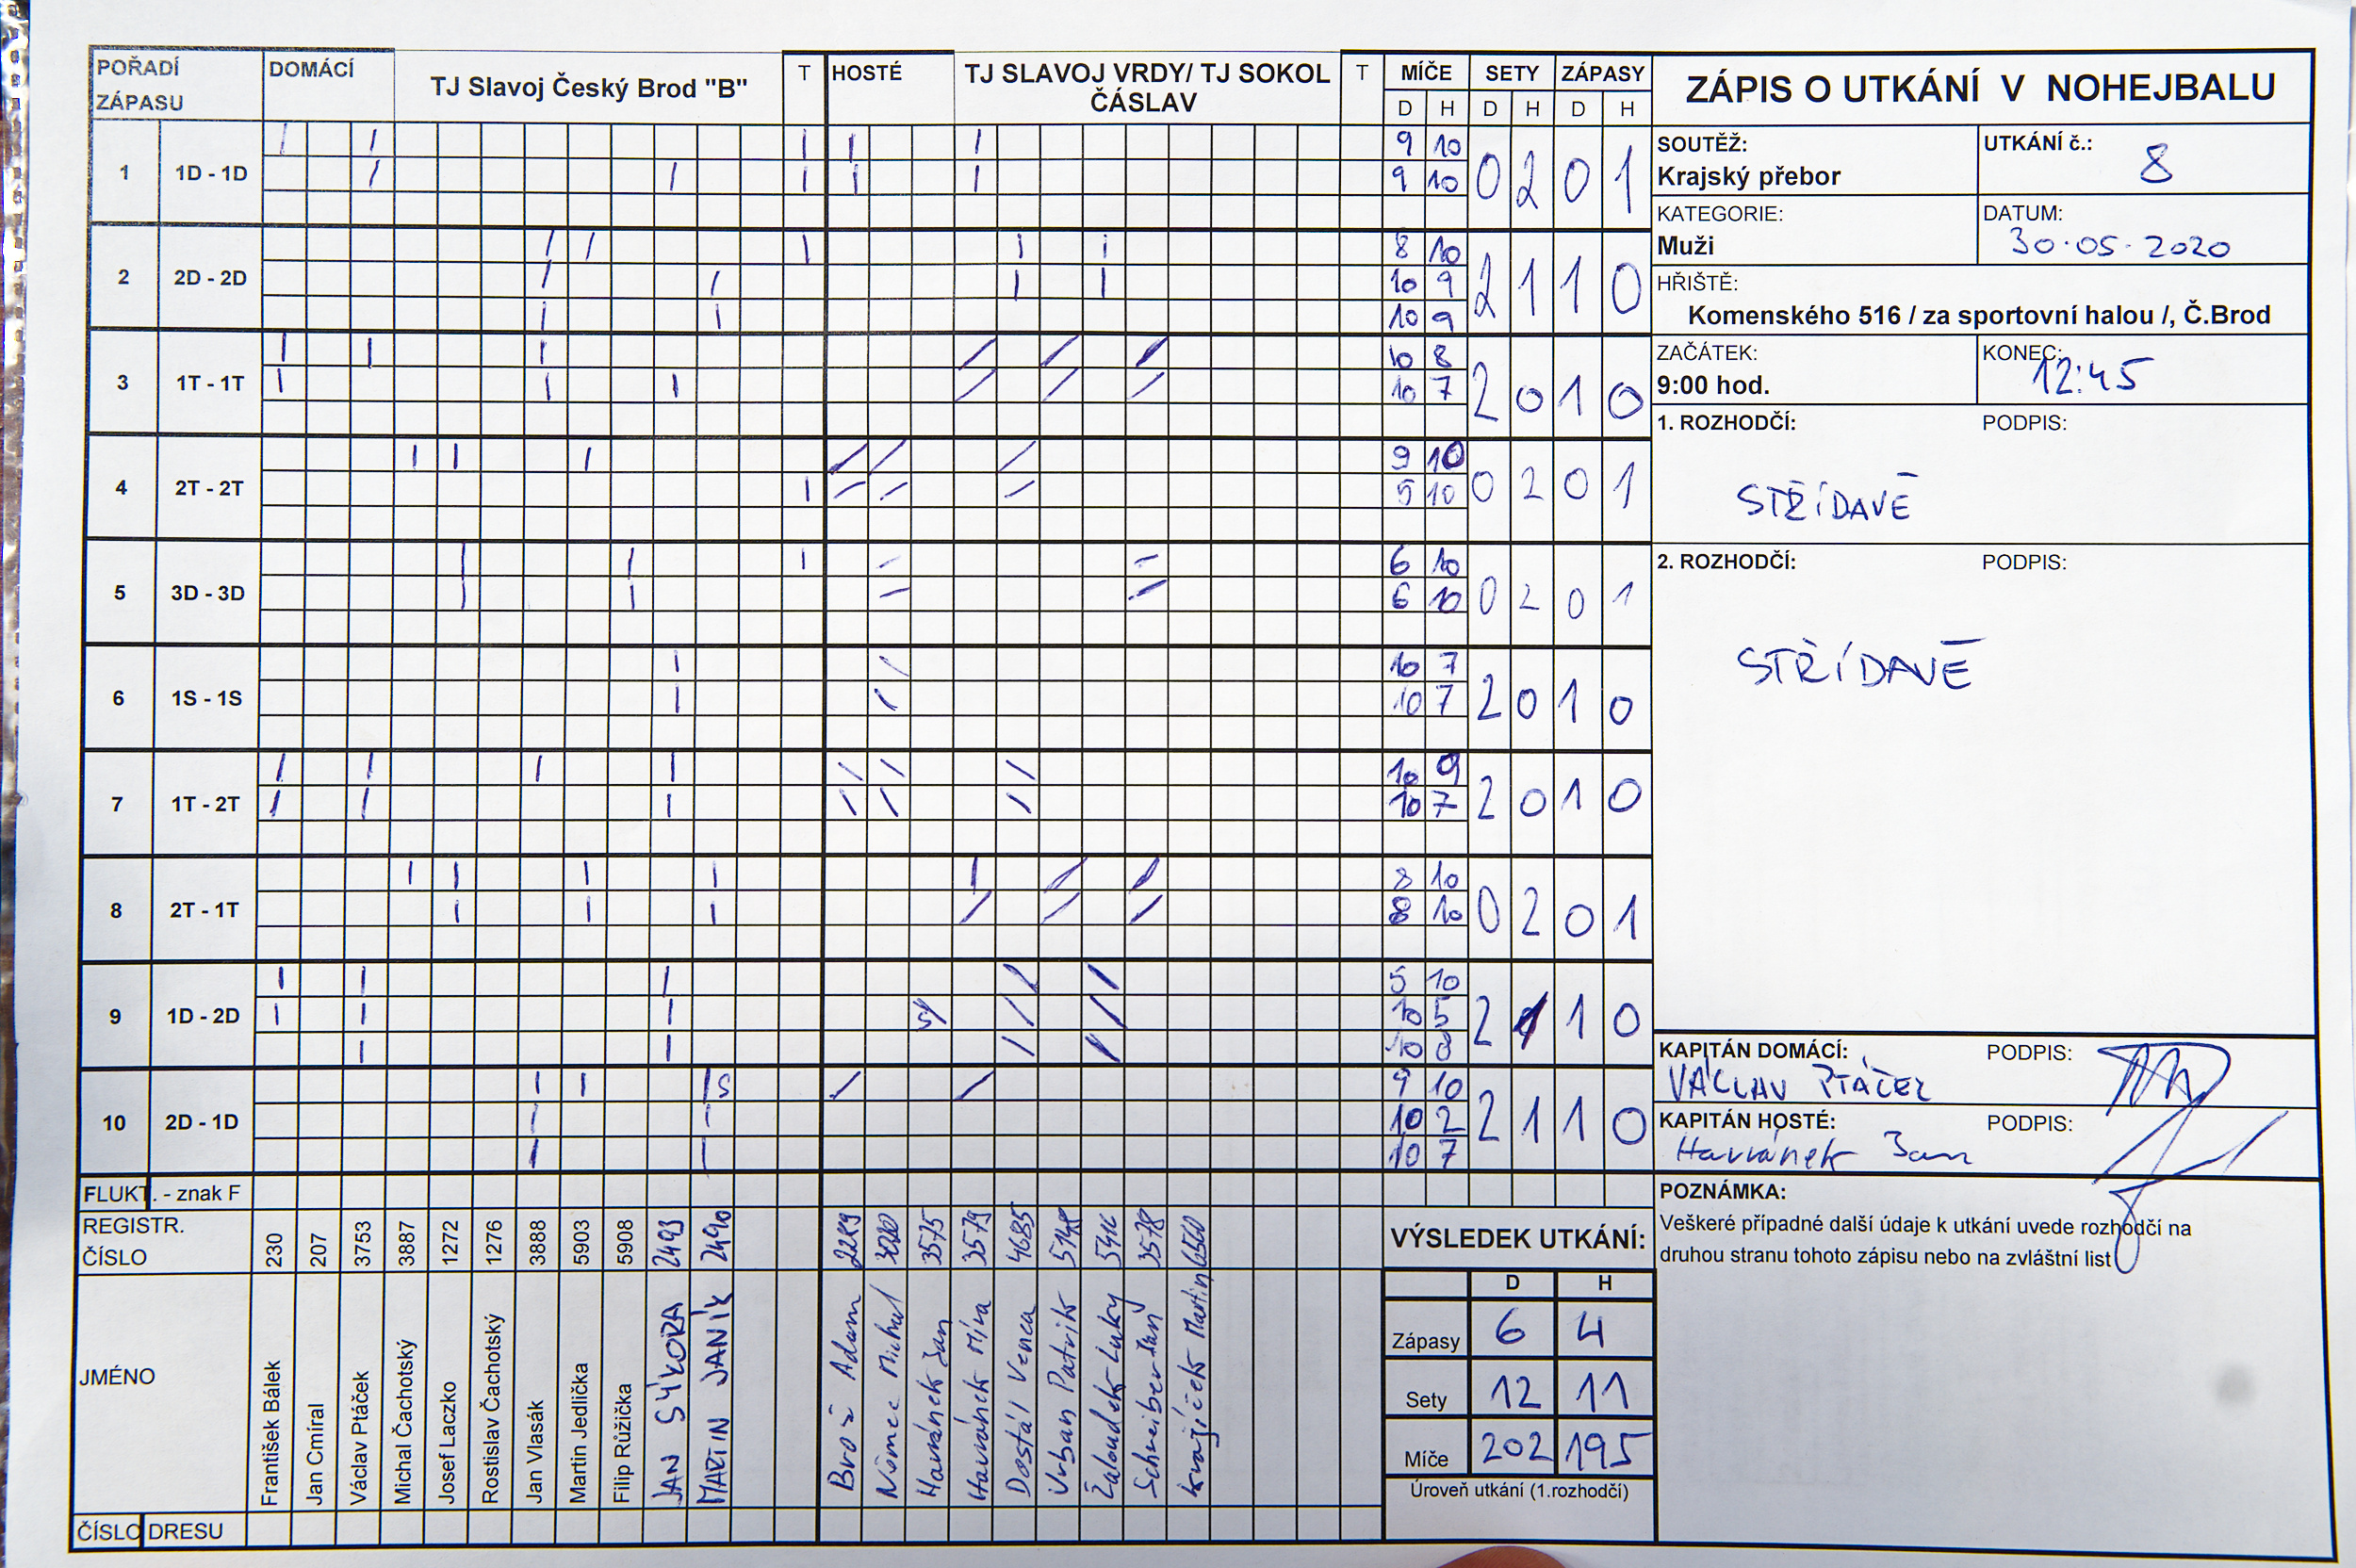 POŘADÍ ZÁPASU DOMÁCÍ TJ Slavoj Český Brod "B" T HOSTÉ TJ SLAVOJ VRDY/ TJ SOKOL ČÁSLAV T MÍČE SETY ZÁPASY
D H D H D H
1 1D - 1D 9 10 0 2 0 1
9 10
2 2D - 2D 8 10 2 1 1 0
10 9
10 9
3 1T - 1T 10 8 2 0 1 0
10 7
4 2T - 2T 9 10 0 2 0 1
5 10
5 3D - 3D 6 10 0 2 0 1
6 10
6 1S - 1S 10 7 2 0 1 0
10 7
7 1T - 2T 10 9 2 0 1 0
10 7
8 2T - 1T 8 10 0 2 0 1
8 10
9 1D - 2D 5 10 2 1 1 0
S 10 5
10 8
10 2D - 1D S 9 10 2 1 1 0
10 2
10 7
FLUKT. - znak F
REGISTR. ČÍSLO 230 207 3753 3887 1272 1276 3888 5903 5908 2493 2490 2289 3575 3579 4685 3578 6560
JMÉNO
František Bálek
Jan Cmíral
Václav Ptáček
Michal Čachotský
Josef Laczko
Rostislav Čachotský
Jan Vlasák
Martin Jedlička
Filip Růžička
JAN SÝKORA
MARTIN JANÍK
Brož Adam
Němec Michal
Havránek Jan
Havránek Míra
Dostál Venca
Urban Patrik
Žaloudek Luky
Schreiber Jan
Krajíček Martin
ČÍSLO DRESU
ZÁPIS O UTKÁNÍ V NOHEJBALU
SOUTĚŽ: UTKÁNÍ č.:
Krajský přebor 8
KATEGORIE: DATUM:
Muži 30.05.2020
HŘIŠTĚ:
Komenského 516 / za sportovní halou /, Č.Brod
ZAČÁTEK: KONEC:
9:00 hod. 12:45
1. ROZHODČÍ: PODPIS:
STŘÍDAVĚ
2. ROZHODČÍ: PODPIS:
STŘÍDAVĚ
KAPITÁN DOMÁCÍ: PODPIS:
VÁCLAV PTÁČEK
KAPITÁN HOSTÉ: PODPIS:
Havránek Jan
POZNÁMKA:
Veškeré případné další údaje k utkání uvede rozhodčí na
druhou stranu tohoto zápisu nebo na zvláštní list
VÝSLEDEK UTKÁNÍ:
D H
Zápasy 6 4
Sety 12 11
Míče 202 195
Úroveň utkání (1.rozhodčí)